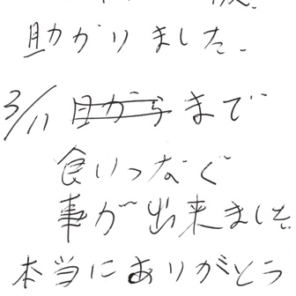 助かりました.
3/11 日から まで
食いつなぐ
事が出来ました
本当にありがとう